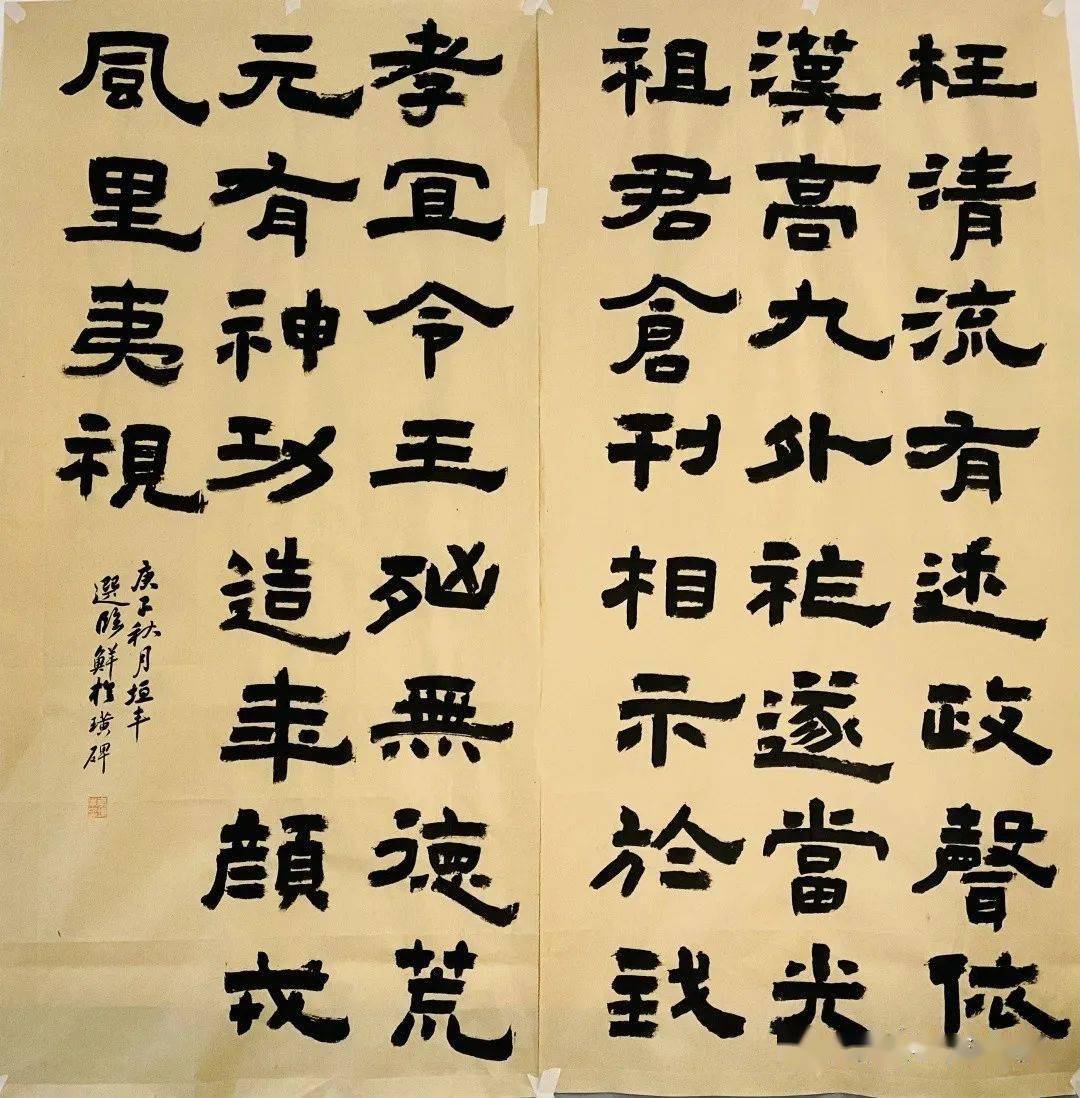 枉清流有述政聲依
漢高九外祀遂當光
祖君倉刊相示於戟
孝宣令王死無德荒
元有神功造年顏戎
風里夷視
庚子秋月垣丰
選臨鮮於璜碑